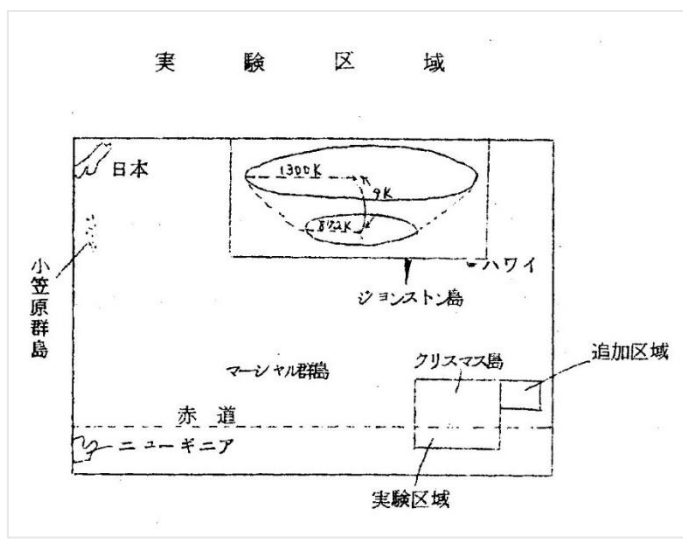 実験区域
日本
1300K
9K
872K
ハワイ
ジョンストン島
小笠原群島
マーシャル群島
クリスマス島
追加区域
赤道
ニューギニア
実験区域